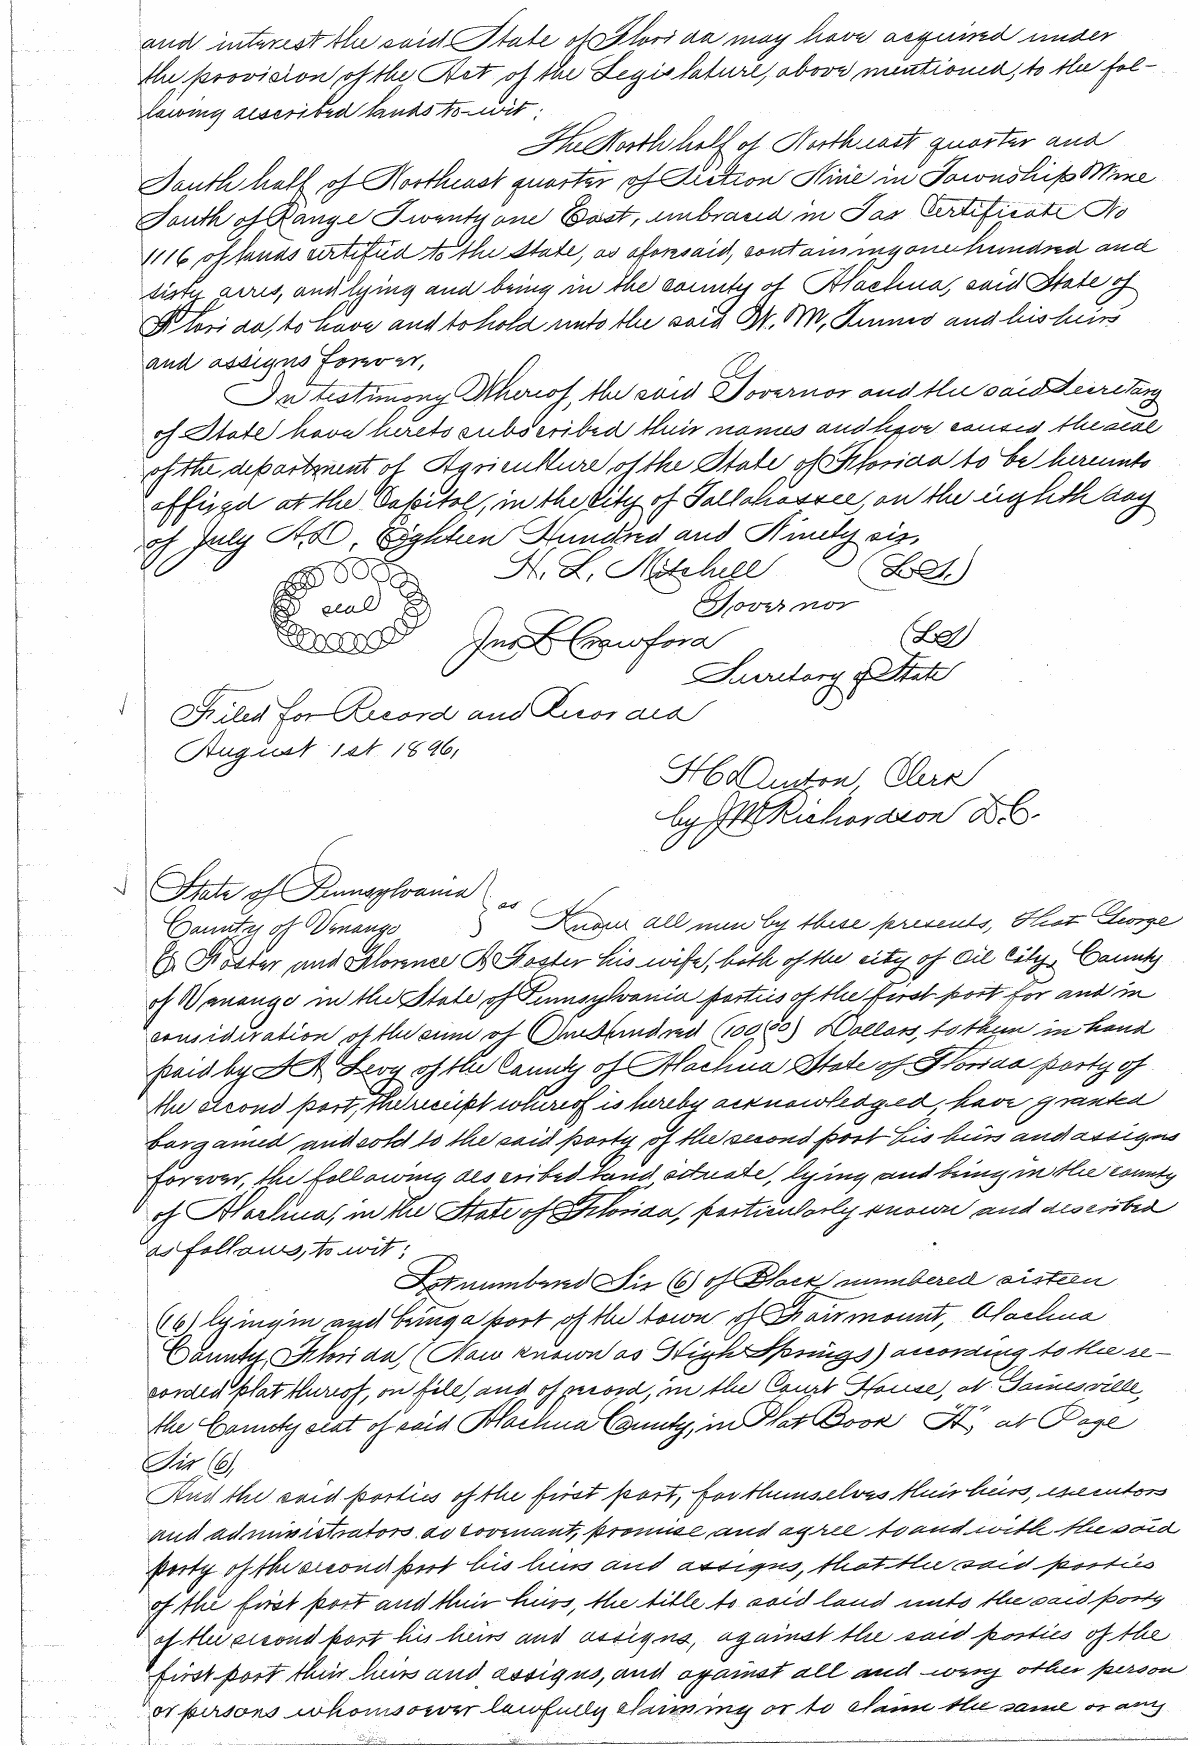 and interest the said State of Florida may have acquired under
the provision of the Act of the Legislature, above mentioned, to the fol-
lowing described lands to-wit:
The North half of Northeast quarter and
South half of Northeast quarter of Section Nine in Township Nine
South of Range Twenty one East, embraced in Tax Certificate No
1116, of lands certified to the State, as aforesaid, containing one hundred and
sixty acres, and lying and being in the county of Alachua, said State of
Florida, to have and to hold unto the said W. M. and his heirs
and assigns forever.
In testimony Whereof, the said Governor and the said Secretary
of State have hereto subscribed their names and have caused the seal
of the department of Agriculture of the State of Florida to be hereunto
affixed at the Capitol, in the City of Tallahassee, on the eighth day
of July A.D. Eighteen Hundred and Ninety six.
H. L. Mitchell (L.S.)
seal
Governor
Jno L Crawford (LS)
Secretary of State
Filed for Record and Recorded
August 1st 1896.
H C Denton, Clerk
by J M Richardson D.C.
State of Pennsylvania
County of Venango } ss Know all men by these presents, That George
E. Foster and Florence B. Foster his wife, both of the city of Oil City, County
of Venango in the State of Pennsylvania parties of the first part for and in
consideration of the sum of One Hundred (100.00) Dollars, to them in hand
paid by Levy of the County of Alachua State of Florida party of
the second part, the receipt whereof is hereby acknowledged, have granted
bargained and sold to the said party of the second part his heirs and assigns
forever, the following described land, situate, lying and being in the county
of Alachua, in the State of Florida, particularly known and described
as follows, to wit:
Lot numbered Six (6) of Block numbered sixteen
(16) lying in and being a part of the town of Fairmount, Alachua
County, Florida, (Now known as High Springs) according to the re-
corded plat thereof, on file, and of record, in the Court House, at Gainesville,
the County seat of said Alachua County, in Plat Book "A", at Page
Six (6),
And the said parties of the first part, for themselves their heirs, executors
and administrators do covenant, promise and agree to and with the said
party of the second part his heirs and assigns, that the said parties
of the first part and their heirs, the title to said land unto the said party
of the second part his heirs and assigns, against the said parties of the
first part their heirs and assigns, and against all and every other person
or persons whomsoever lawfully claiming or to claim the same or any